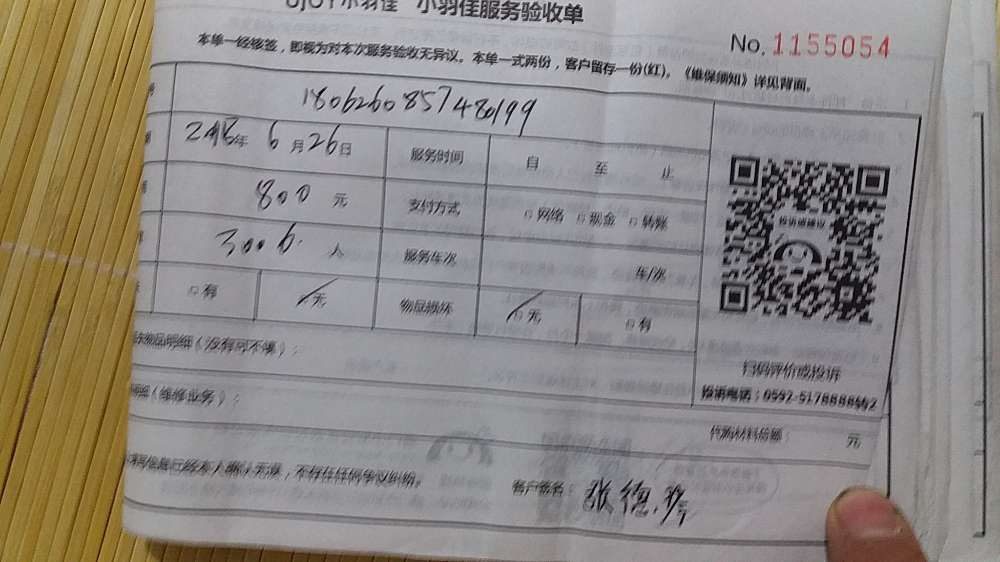 小羽佳 小羽佳服务验收单
No. 1155054
本单一经修签，即视为对本次服务验收无异议。本单一式两份，客户留存一份(红)。《维保须知》详见背面。
1806260857480199
年 6 月 26 日 服务时间 自 至 止
800 元 支付方式 □网络 □现金 □转账
3006 人 服务车次 车/次
□有 □无 物品损坏 □无 □有
投诉或建议
扫码评价或投诉
投诉电话：0592-5178888
物品明细（没有可不填）：
（维修业务）：
代购材料总额： 元
不存在任何争议纠纷。 客户签名：张德